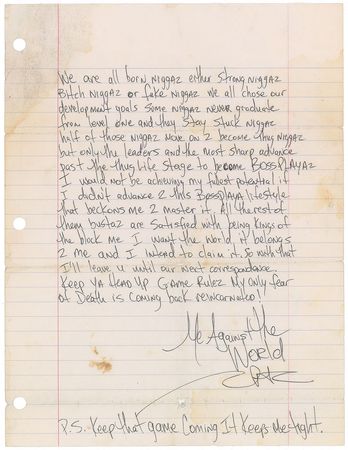 We are all born NiggAz either strong NiggAz
Bitch NiggAz or fake NiggAz we all chose our
development goals some NiggAz never graduate
from level one and they stay stuck NiggAz
half of those NiggAz move on 2 become thug NiggAz
but only the leaders and the most sharp advance
past the thug life stage to become BossPLAYAz
I would not be achieving my fullest potential if
I didn't advance 2 this BossPLAYA lifestyle
that beckons me 2 master it. All the rest of
them bustaz are satisfied with being kings of
the block me I want the world, it belongs
2 me and I intend to claim it. So with that
I'll leave u until our next correspondence.
Keep Ya Head Up Game Rulez My only fear
of Death is coming back reincarnated!
Me Against the
World
P.S. Keep that game Coming It Keeps me tight.